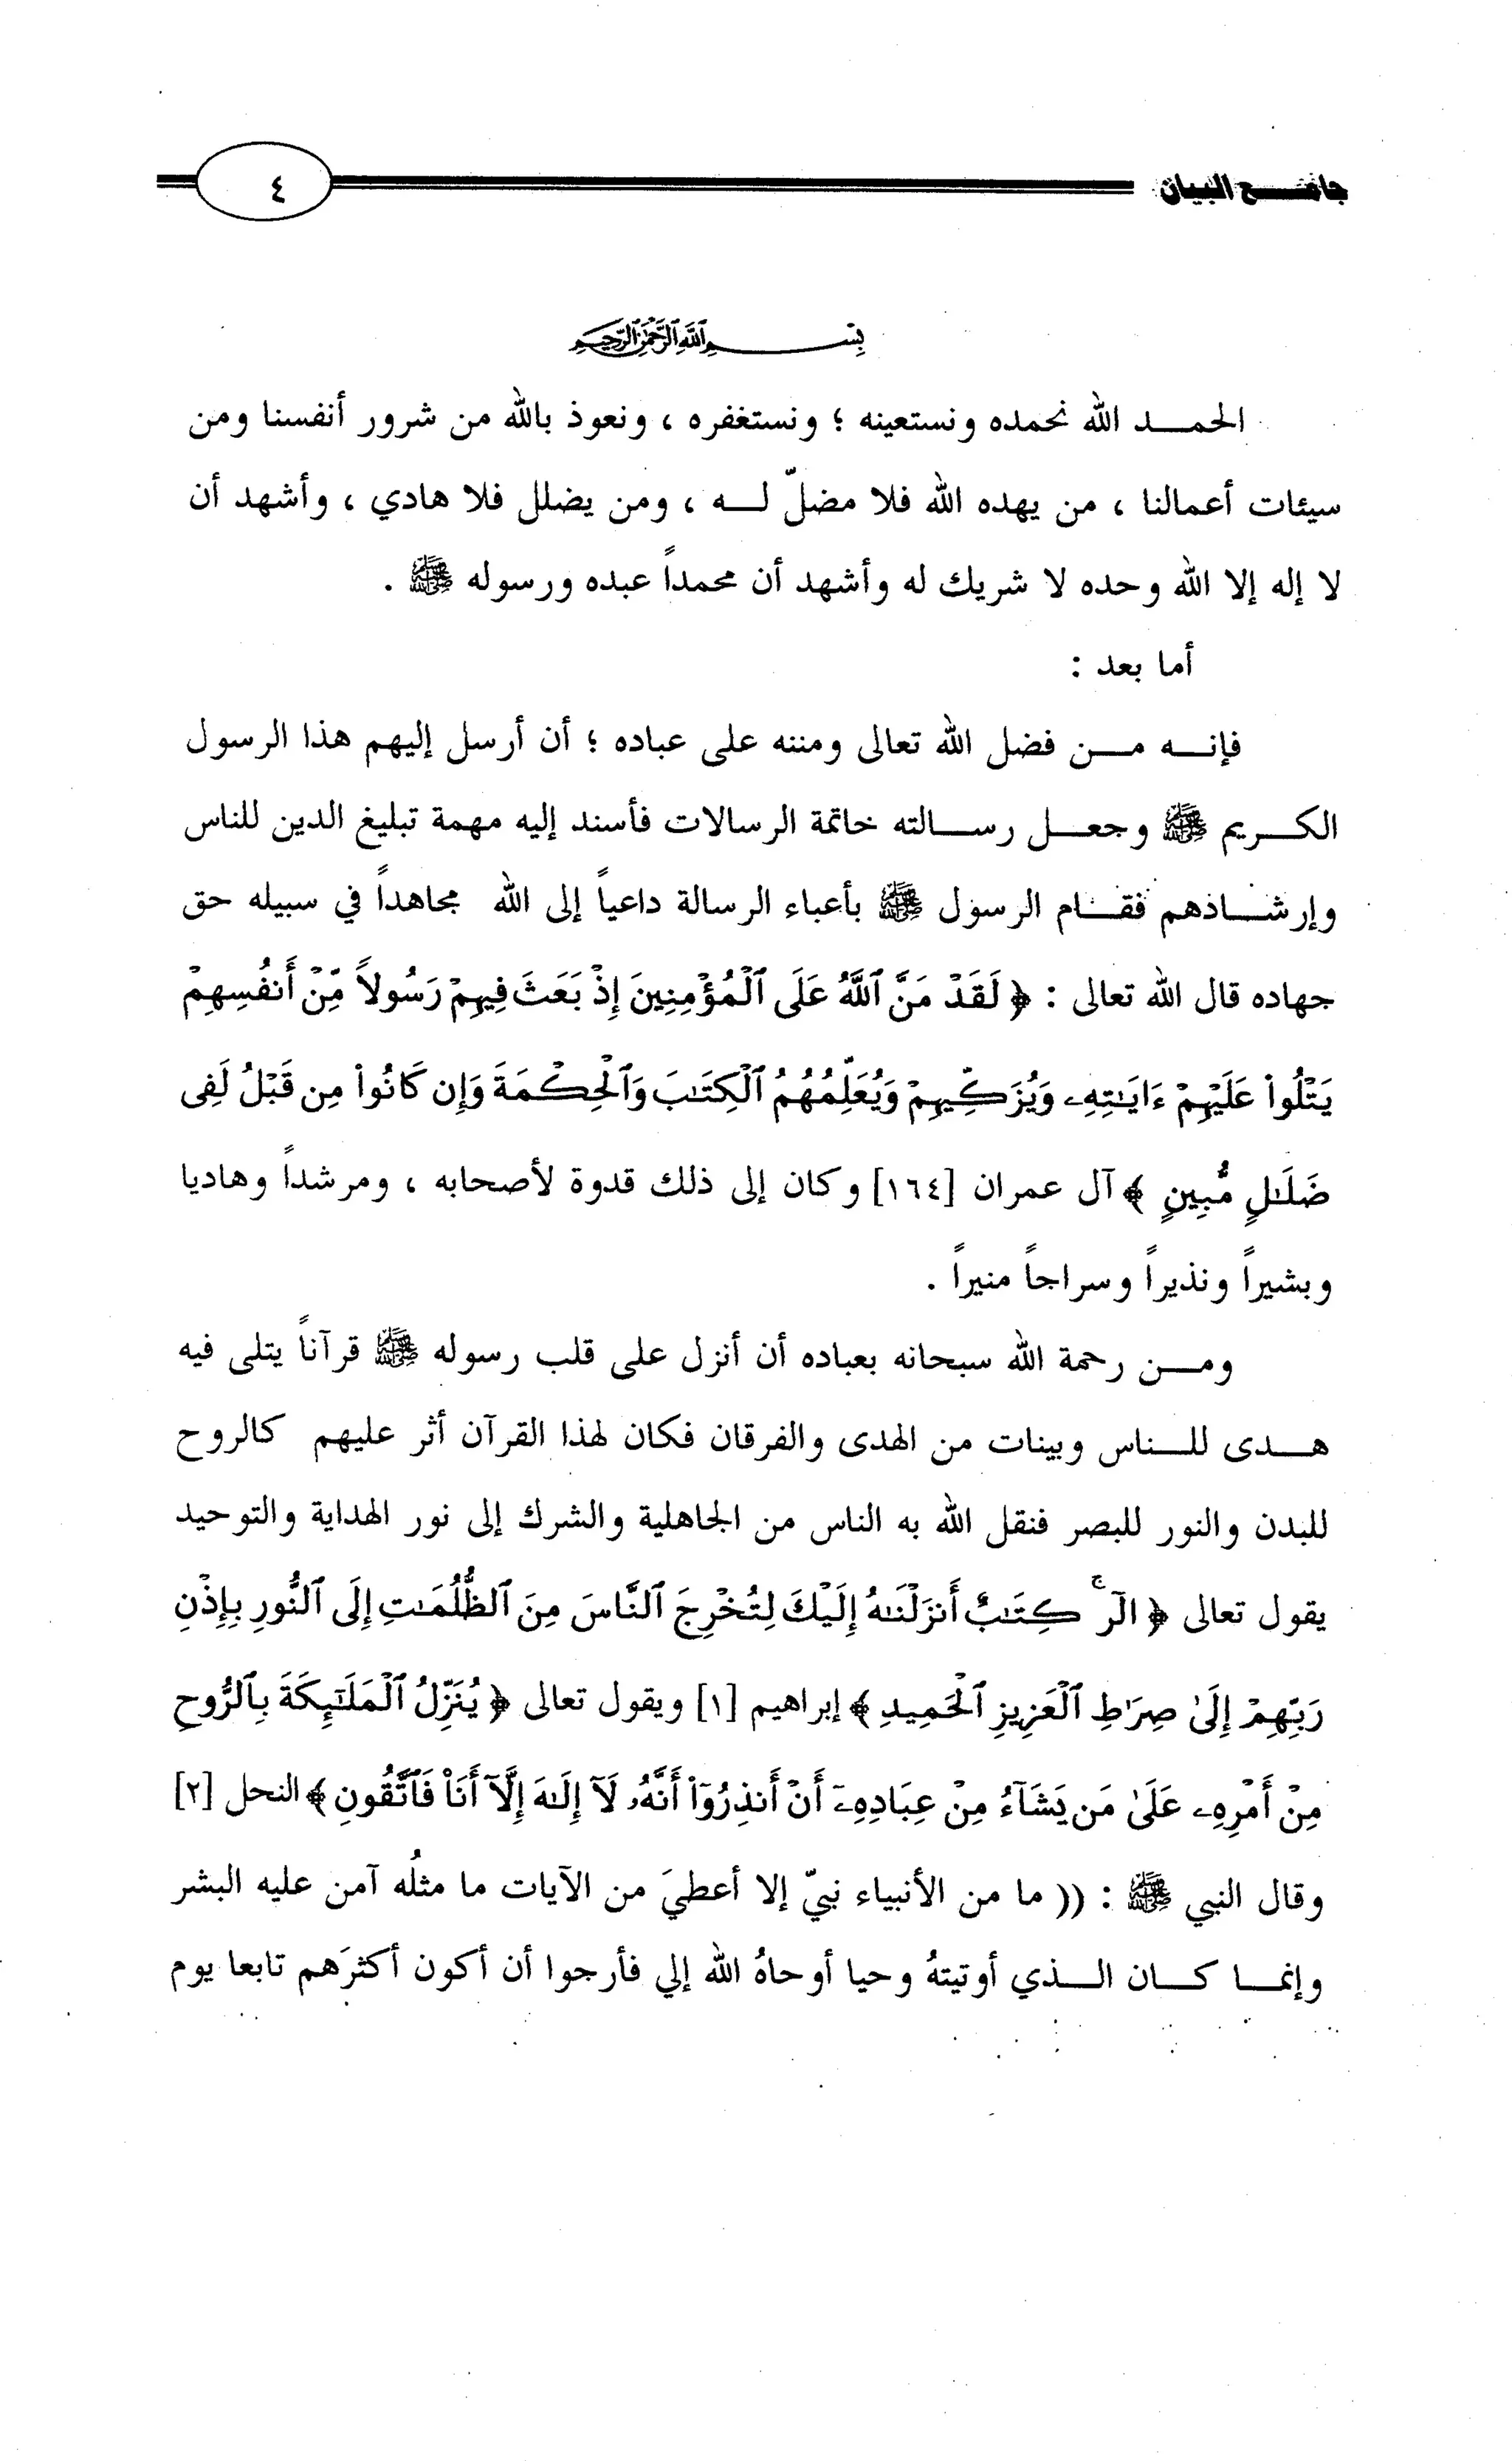 جامع البيان ٤
بسم الله الرحمن الرحيم
الحمد لله نحمده ونستعينه ؛ ونستغفره ، ونعوذ بالله من شرور أنفسنا ومن
سيئات أعمالنا ، من يهده الله فلا مضلّ له ، ومن يضلل فلا هادي ، وأشهد أن
لا إله إلا الله وحده لا شريك له وأشهد أن محمداً عبده ورسوله ﷺ .
أما بعد :
فإنه من فضل الله تعالى ومننه على عباده ؛ أن أرسل إليهم هذا الرسول
الكريم ﷺ وجعل رسالته خاتمة الرسالات فأسند إليه مهمة تبليغ الدين للناس
وإرشاذهم فقام الرسول ﷺ بأعباء الرسالة داعياً إلى الله مجاهداً في سبيله حق
جهاده قال الله تعالى : ﴿ لَقَدْ مَنَّ ٱللَّهُ عَلَى ٱلْمُؤْمِنِينَ إِذْ بَعَثَ فِيهِمْ رَسُولاً مِّنْ أَنفُسِهِمْ
يَتْلُواْ عَلَيْهِمْ ءَايَٰتِهِۦ وَيُزَكِّيهِمْ وَيُعَلِّمُهُمُ ٱلْكِتَٰبَ وَٱلْحِكْمَةَ وَإِن كَانُواْ مِن قَبْلُ لَفِى
ضَلَٰلٍ مُّبِينٍ ﴾ آل عمران [١٦٤] وكان إلى ذلك قدوة لأصحابه ، ومرشداً وهاديا
وبشيراً ونذيراً وسراجاً منيراً .
ومن رحمة الله سبحانه بعباده أن أنزل على قلب رسوله ﷺ قرآناً يتلى فيه
هدى للناس وبينات من الهدى والفرقان فكان لهذا القرآن أثر عليهم كالروح
للبدن والنور للبصر فنقل الله به الناس من الجاهلية والشرك إلى نور الهداية والتوحيد
يقول تعالى ﴿ الٓرۚ كِتَٰبٌ أَنزَلْنَٰهُ إِلَيْكَ لِتُخْرِجَ ٱلنَّاسَ مِنَ ٱلظُّلُمَٰتِ إِلَى ٱلنُّورِ بِإِذْنِ
رَبِّهِمْ إِلَىٰ صِرَٰطِ ٱلْعَزِيزِ ٱلْحَمِيدِ ﴾ إبراهيم [١] ويقول تعالى ﴿ يُنَزِّلُ ٱلْمَلَٰٓئِكَةَ بِٱلرُّوحِ
مِنْ أَمْرِهِۦ عَلَىٰ مَن يَشَآءُ مِنْ عِبَادِهِۦٓ أَنْ أَنذِرُوٓاْ أَنَّهُۥ لَآ إِلَٰهَ إِلَّآ أَنَاْ فَٱتَّقُونِ ﴾ النحل [٢]
وقال النبي ﷺ : (( ما من الأنبياء نبيّ إلا أعطيَ من الآيات ما مثلُه آمن عليه البشر
وإنما كان الذي أوتيتهُ وحيا أوحاهُ الله إلي فأرجوا أن أكون أكثرَهم تابعا يوم